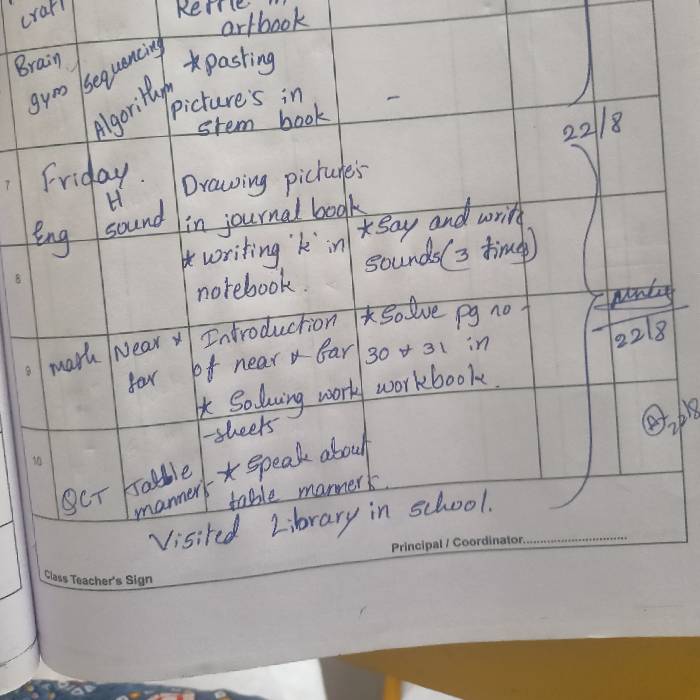 craft
Kettle in
artbook
Brain
gym
Sequencing
Algorithm
* pasting
picture's in
stem book
-
22/8
7
Friday.
Eng
H
sound
Drawing picture's
in journal book
* writing 'k' in
notebook.
* Say and write
sounds (3 times)
8
9
math
Near &
far
Introduction
of near & far
* Solving work
-sheets
* Solve pg no -
30 & 31 in
workbook.
22/8
10
Table
manners
* Speak about
table manners.
22/8
Visited Library in school.
Class Teacher's Sign
Principal / Coordinator..............................